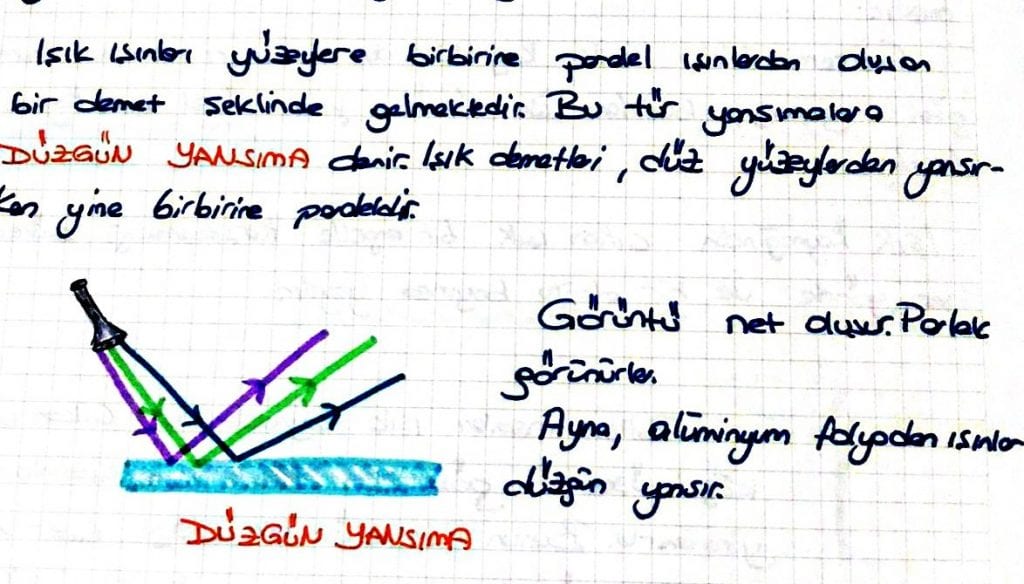 Işık ışınları yüzeylere birbirine paralel ışınlardan oluşan
bir demet şeklinde gelmektedir. Bu tür yansımalara
DÜZGÜN YANSIMA denir. Işık demetleri, düz yüzeylerden yansır-
ken yine birbirine paraleldir.
Görüntü net oluşur. Parlak
görünürler.
Ayna, alüminyum folyodan ışınlar
düzgün yansır.
DÜZGÜN YANSIMA